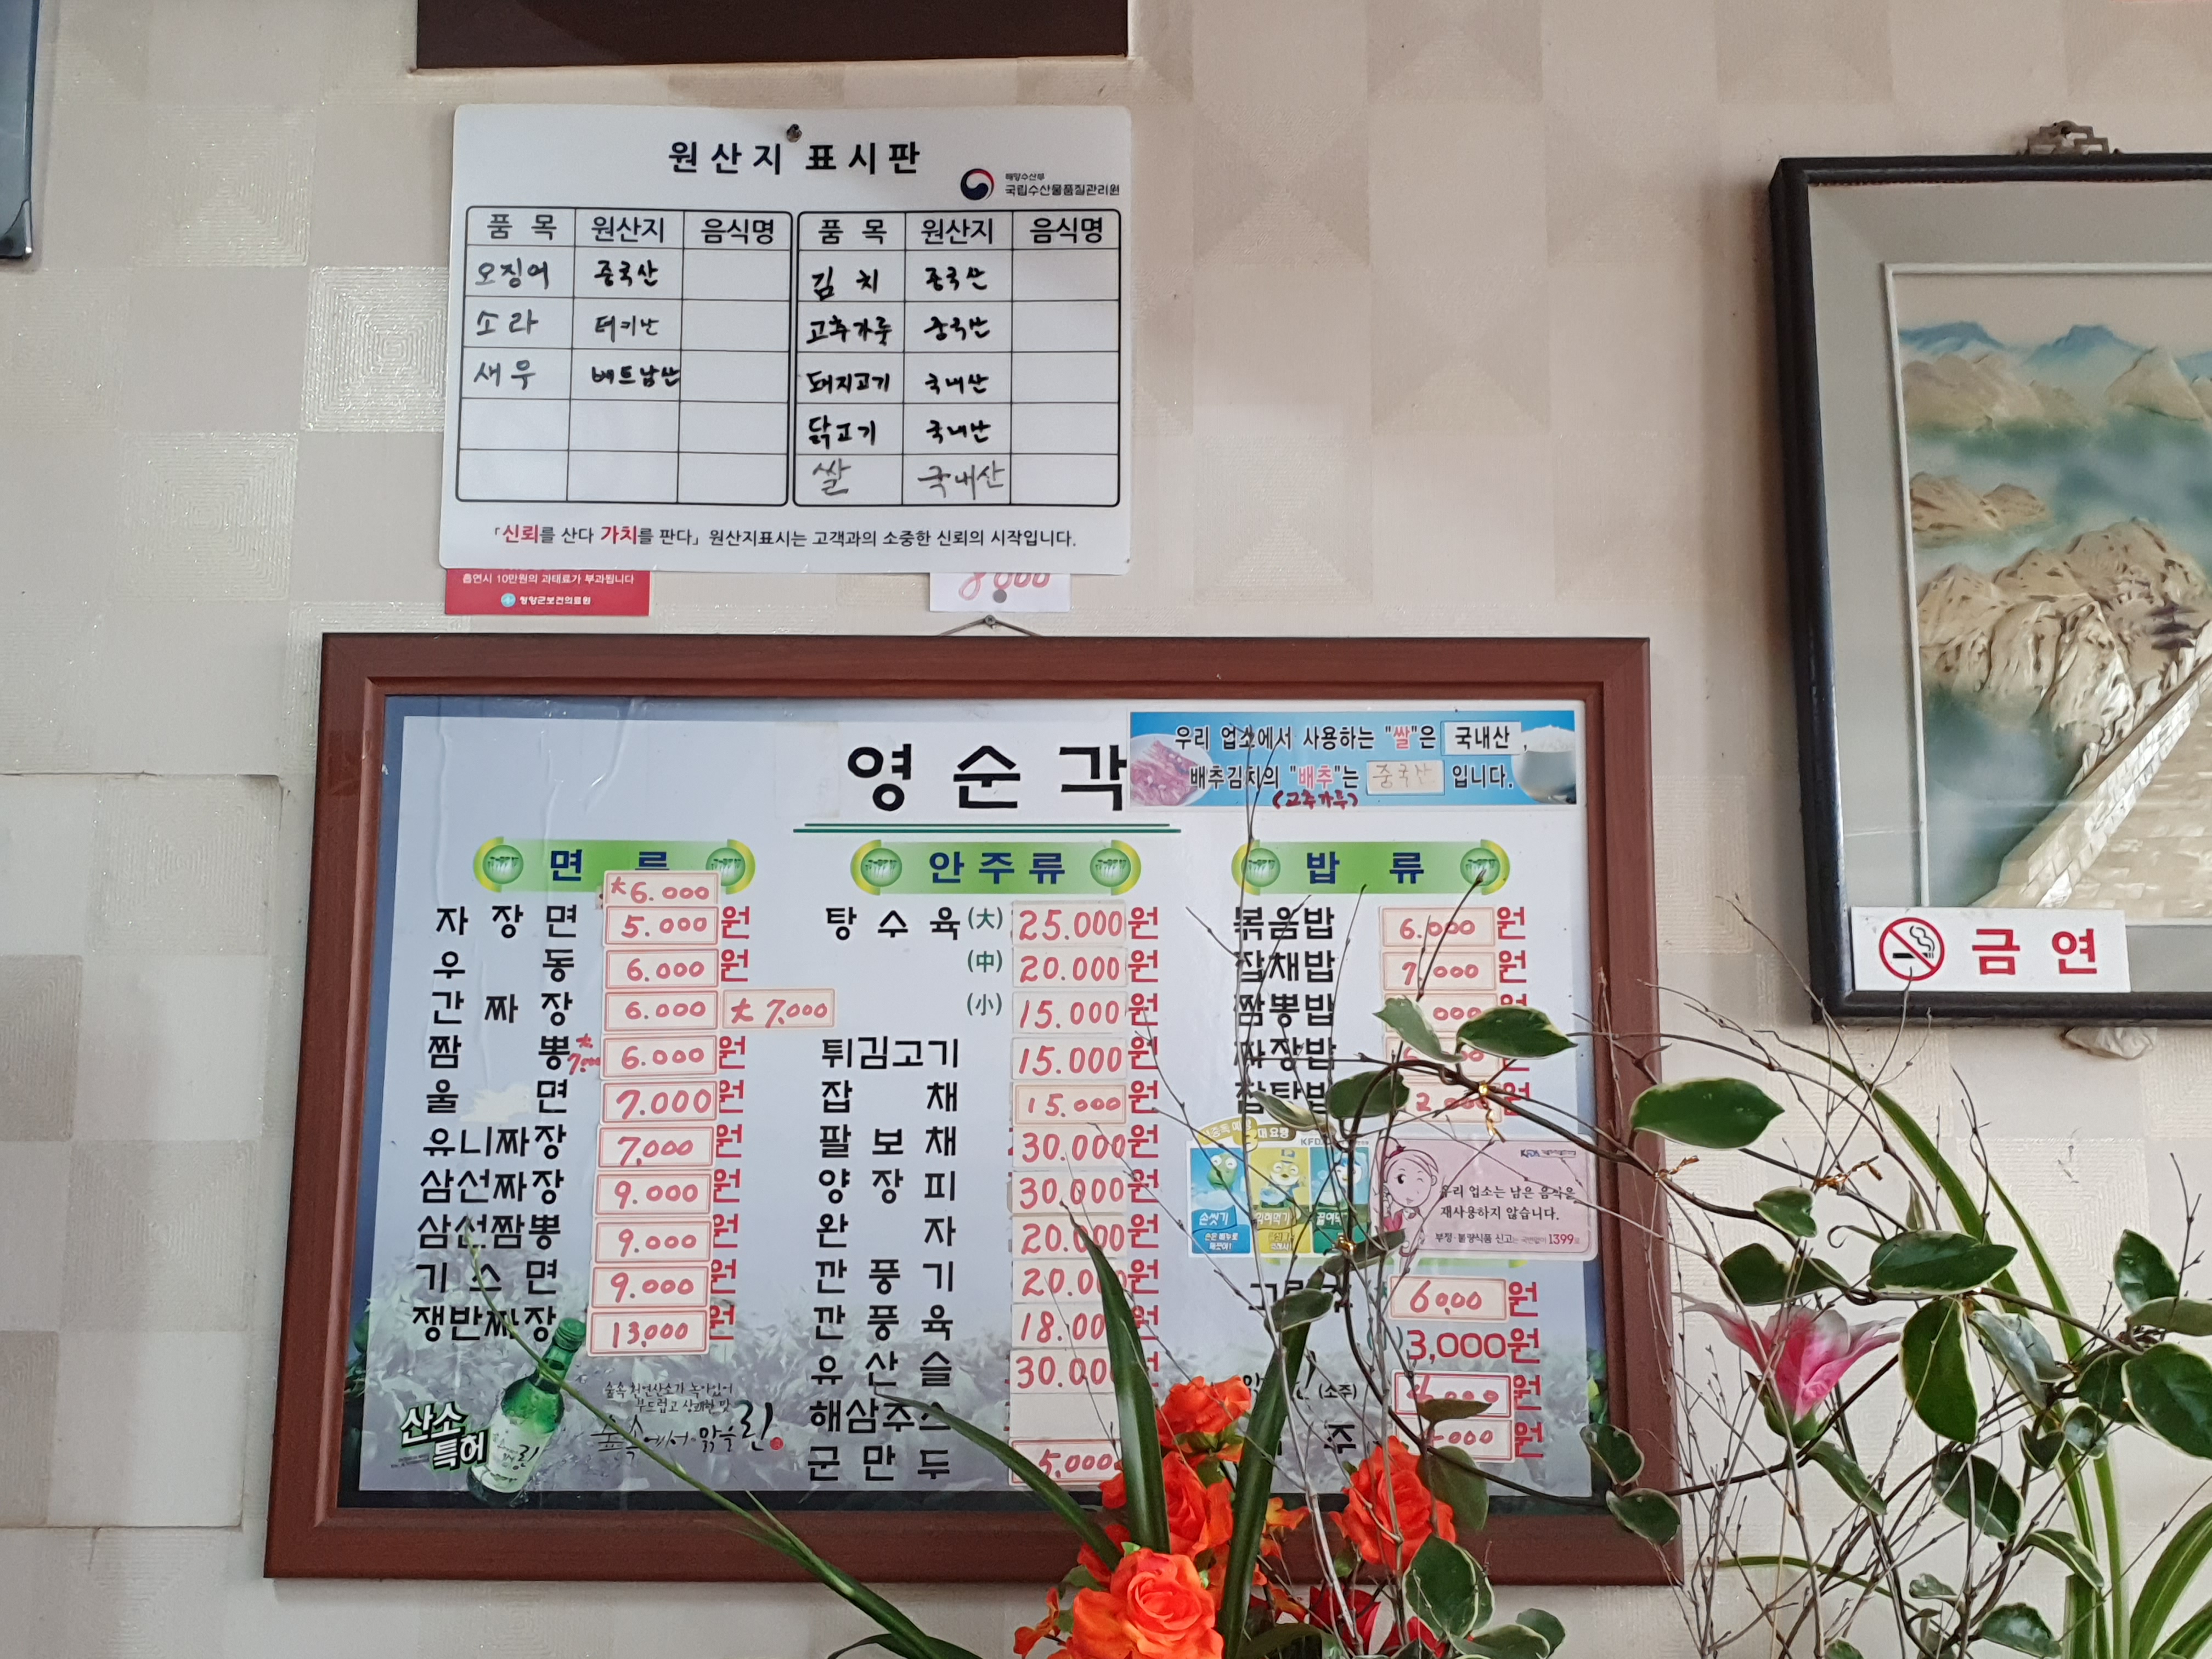 원산지 표시판
해양수산부
국립수산물품질관리원
품 목 원산지 음식명 품 목 원산지 음식명
오징어 중국산 김 치 중국산
소라 터키산 고추가루 중국산
새우 베트남산 돼지고기 국내산
닭고기 국내산
쌀 국내산
「신뢰를 산다 가치를 판다」 원산지표시는 고객과의 소중한 신뢰의 시작입니다.
흡연시 10만원의 과태료가 부과됩니다
청양군보건의료원
8000
영순각
우리 업소에서 사용하는 "쌀"은 국내산,
배추김치의 "배추"는 중국산 입니다.
(고추가루)
면 류
大 6.000
자장면 5.000원
우동 6.000원
간짜장 6.000 大 7.000
짬뽕 大 7.000 6.000원
울면 7.000원
유니짜장 7.000원
삼선짜장 9.000원
삼선짬뽕 9.000원
기스면 9.000원
쟁반짜장 13.000원
산소
특허
숲속 천연산소가 녹아있어
부드럽고 상쾌한 맛
숲속에서 맑을린!
안주류
탕수육 (大) 25.000원
(中) 20.000원
(小) 15.000원
튀김고기 15.000원
잡채 15.000원
팔보채 30.000원
양장피 30.000원
완자 20.000원
깐풍기 20.000
깐풍육 18.000
유산슬 30.000
해삼주스
군만두 5.000
밥 류
볶음밥 6.000원
잡채밥 7.000원
짬뽕밥
짜장밥
잡탕밥
손씻기
우리 업소는 남은 음식은
재사용하지 않습니다.
부정·불량식품 신고는 국번없이 1399로
6000원
3,000원
(소주) 원
원
금연